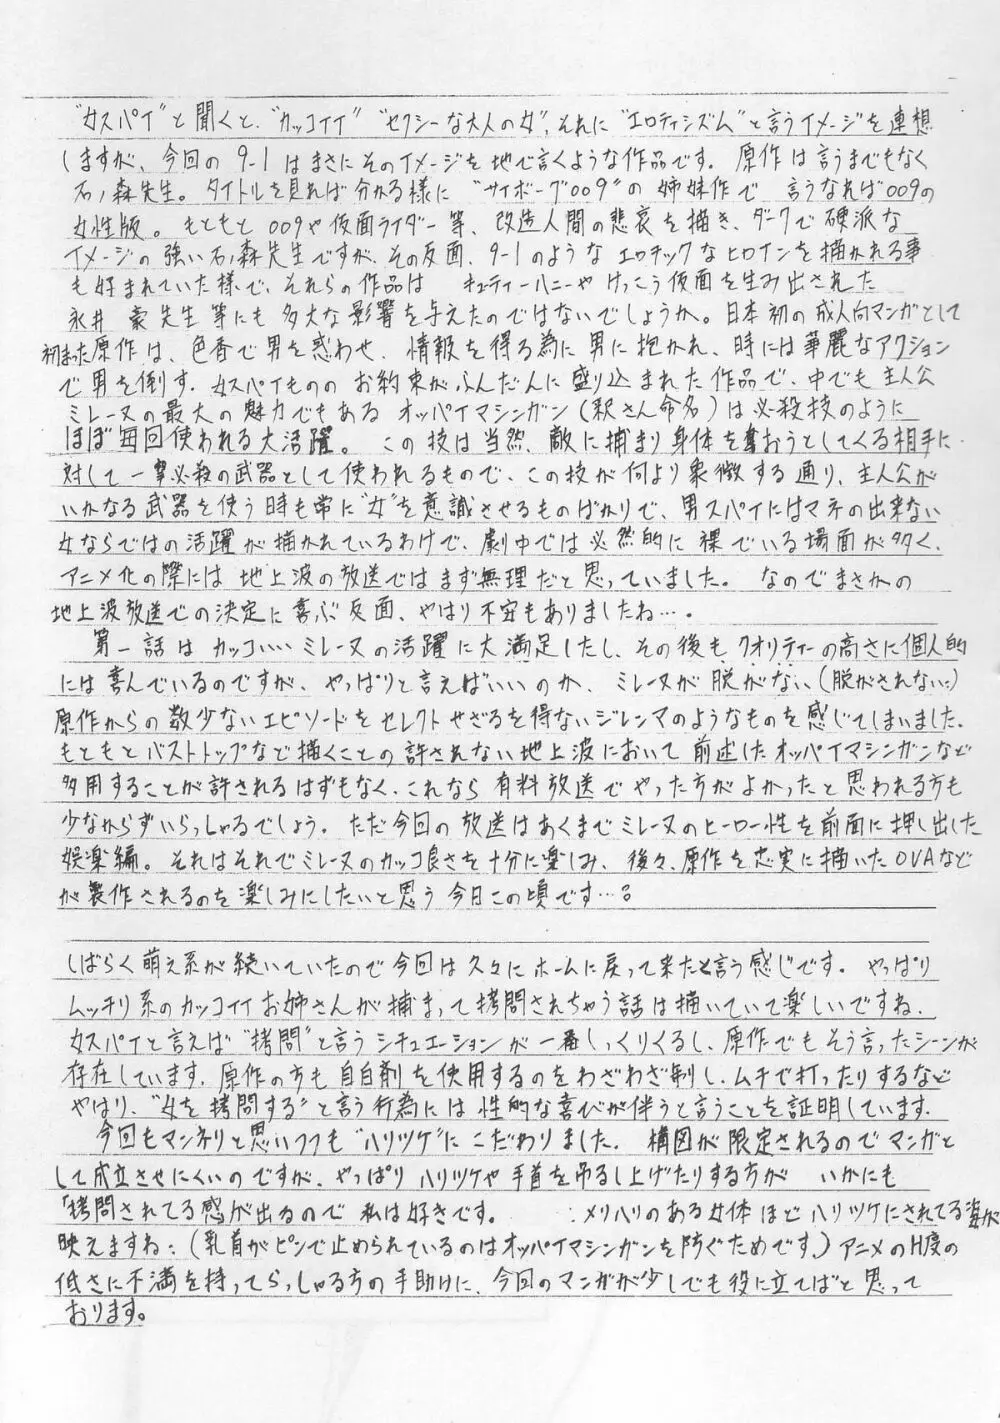 "女スパイ"と聞くと、"カッコイイ" "セクシーな大人の女"、それに"エロティシズム"と言うイメージを連想
しますが、今回の 9-1 はまさにそのイメージを地で言くような作品です。 原作は言うまでもなく
石ノ森先生。 タイトルを見れば分かる様に "サイボーグ009"の 姉妹作で 言うなれば009の
女性版。 もともと 009や仮面ライダー等、改造人間の悲哀を描き、ダークで硬派な
イメージの 強い石ノ森先生ですが、その反面、9-1のような エロチックなヒロインを描かれる事
も好まれていた様で、それらの作品は キューティーハニーやけっこう仮面を生み出された
永井 豪先生 等にも 多大な影響を与えたのではないでしょうか。日本初の成人向マンガとして
初まった原作は、色香で男を惑わせ、情報を得る為に男に抱かれ、時には華麗なアクション
で男を倒す、女スパイものの お約束がふんだんに盛り込まれた作品で、中でも主人公
ミレーヌの最大の魅力でもある オッパイマシンガン(釈さん命名)は必殺技のように
ほぼ毎回使われる大活躍。 この技は当然、敵に捕まり身体を奪おうとしてくる相手に
対して一撃必殺の武器として使われるもので、この技が何より象徴する通り、主人公が
いかなる武器を使う時も常に"女"を意識させるものばかりで、男スパイにはマネの出来ない
女ならではの活躍が描かれているわけで、劇中では必然的に裸でいる場面が多く、
アニメ化の際には 地上波の放送ではまず無理だと思っていました。 なのでまさかの
地上波放送での決定に喜ぶ反面、やはり不安もありましたね…。
第一話は カッコいいミレーヌの活躍に大満足したし、その後も クオリティーの高さに個人的
には喜んでいるのですが、やっぱりと言えばいいのか、ミレーヌが脱がない(脱がされない)
原作からの数少ないエピソードをセレクトせざるを得ないジレンマのようなものを感じてしまいました。
もともとバストトップなど描くことの許されない地上波において前述したオッパイマシンガンなど
多用することが許されるはずもなく、これなら有料放送でやった方がよかったと思われる方も
少なからずいらっしゃるでしょう。 ただ今回の放送はあくまでミレーヌのヒーロー性を前面に押し出した
娯楽編。それはそれでミレーヌのカッコ良さを十分に楽しみ、後々、原作を忠実に描いたOVAなど
が製作されるのを楽しみにしたいと思う今日この頃です…。
しばらく萌え系が続いていたので今回は久々にホームに戻って来たと言う感じです。 やっぱり
ムッチリ系のカッコイイお姉さんが捕まって拷問されちゃう話は描いていて楽しいですね。
女スパイと言えば"拷問"と言うシチュエーションが一番しっくりくるし、原作でもそう言ったシーンが
存在しています。原作の方も自白剤を使用するのをわざわざ制し、ムチで打ったりするなど
やはり、"女を拷問する"と言う行為には性的な喜びが伴うと言うことを証明しています。
今回もマンネリと思いつつも"ハリツケ"にこだわりました。 構図が限定されるのでマンガと
して成立させにくいのですが、やっぱりハリツケや手首を吊るし上げたりする方が いかにも
「拷問されてる感が出るので私は好きです。 メリハリのある女体ほどハリツケにされてる姿が
映えますね:(乳首がピンで止められているのはオッパイマシンガンを防ぐためです。)アニメのH度の
低さに不満を持ってらっしゃる方の手助けに、今回のマンガが少しでも役に立てばと思って
おります。